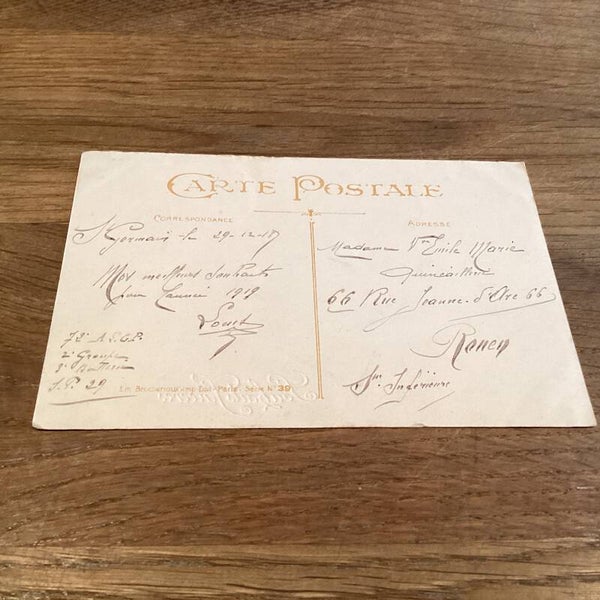 CARTE POSTALE
CORRESPONDANCE
St Germain le 29-12-18
Mes meilleurs souhaits
pour l'année 1919
Louis
2e Groupe
S.P. 29
Paris - Série No 39
ADRESSE
Madame Vve Emile Marie
Quincaillerie
66 Rue Jeanne-d'Arc 66
Rouen
Sne Inférieure